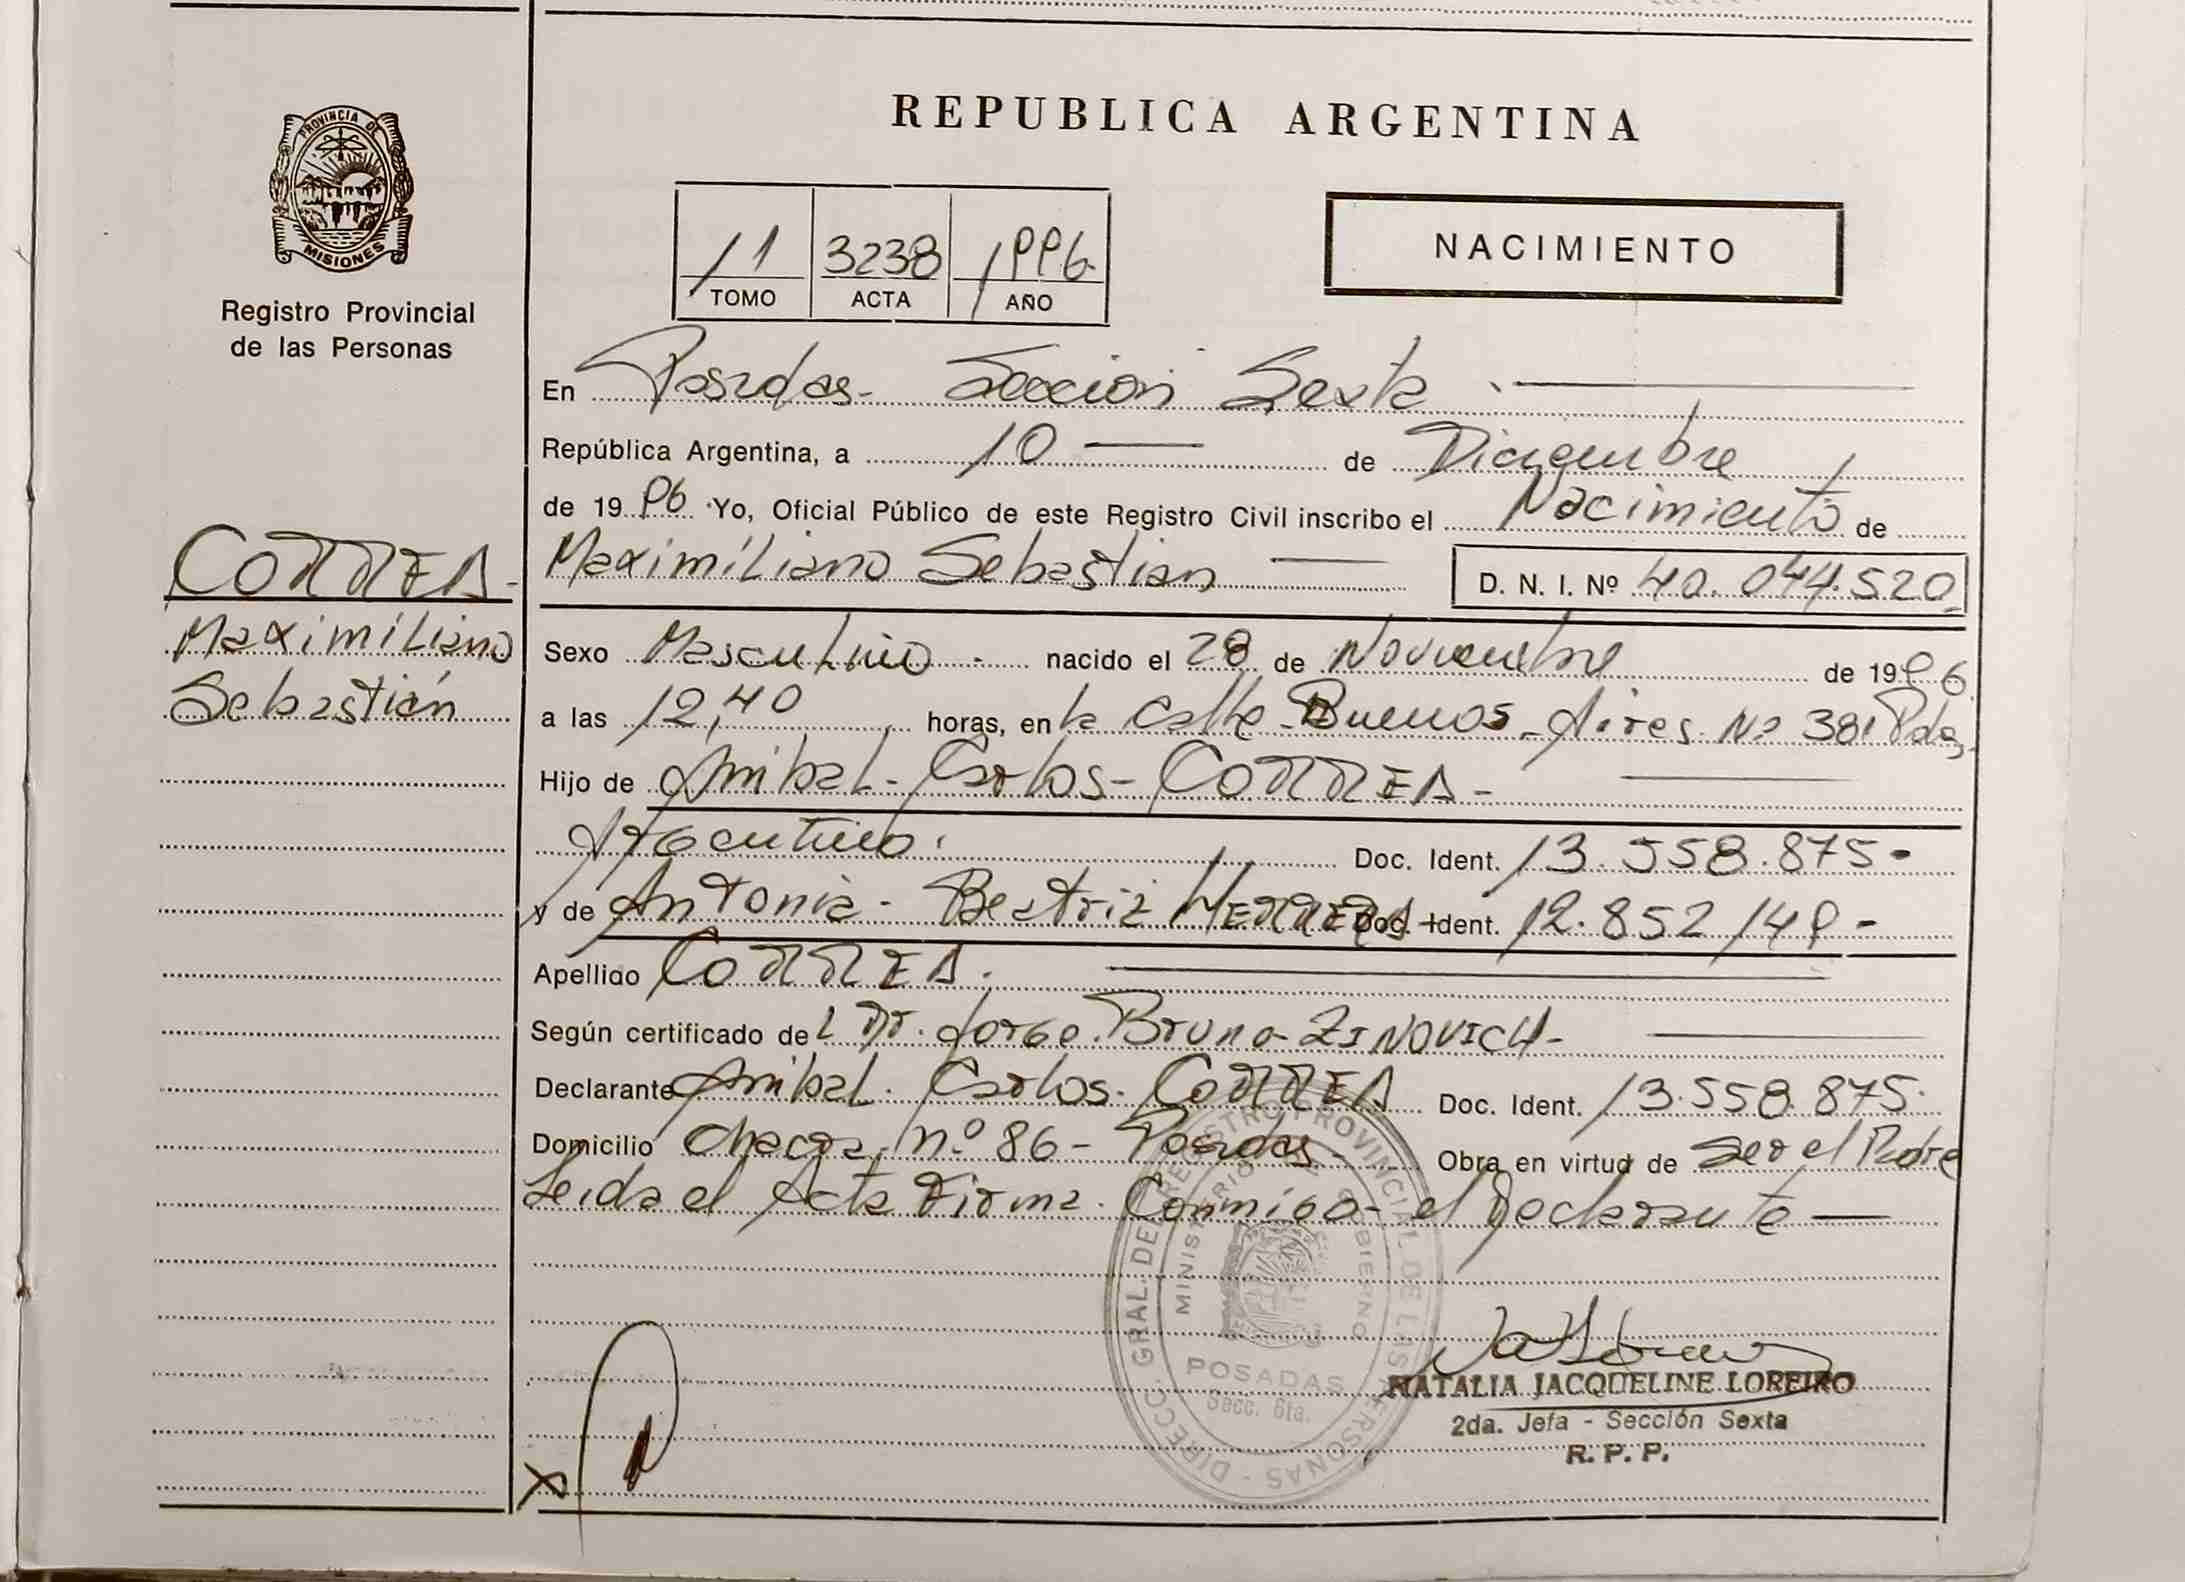 REPUBLICA ARGENTINA
PROVINCIA DE
MISIONES
Registro Provincial
de las Personas
11 3238 1996
TOMO ACTA AÑO
NACIMIENTO
En Posadas- Sección Sexta
República Argentina, a 10 de Diciembre
de 1996 Yo, Oficial Público de este Registro Civil inscribo el Nacimiento de
Maximiliano Sebastian D. N. I. Nº 40.044.520
CORREA-
Maximiliano
Sebastián
Sexo Masculino - nacido el 28 de Noviembre de 1996
a las 12,40 horas, en la calle Buenos Aires Nº 381 Pdas
Hijo de Anibal- Carlos- CORREA-
Argentino. Doc. Ident. 13.558.875-
y de Antonia- Beatriz HERRERA- Doc. Ident. 12.852.149-
Apellido CORREA.
Según certificado del Dr. Jorge Bruno ZINOVICH-
Declarante Anibal. Carlos. CORREA Doc. Ident. 13.558.875.
Domicilio Chacra nº 86- Posadas Obra en virtud de ser el Padre
Leida el Acta Firma Conmigo el Declarante
DIRECC. GRAL. DEL REGISTRO PROVINCIAL DE LAS PERSONAS
MINISTERIO DE GOBIERNO
POSADAS
Secc. 6ta.
NATALIA JACQUELINE LOREIRO
2da. Jefa - Sección Sexta
R. P. P.
X